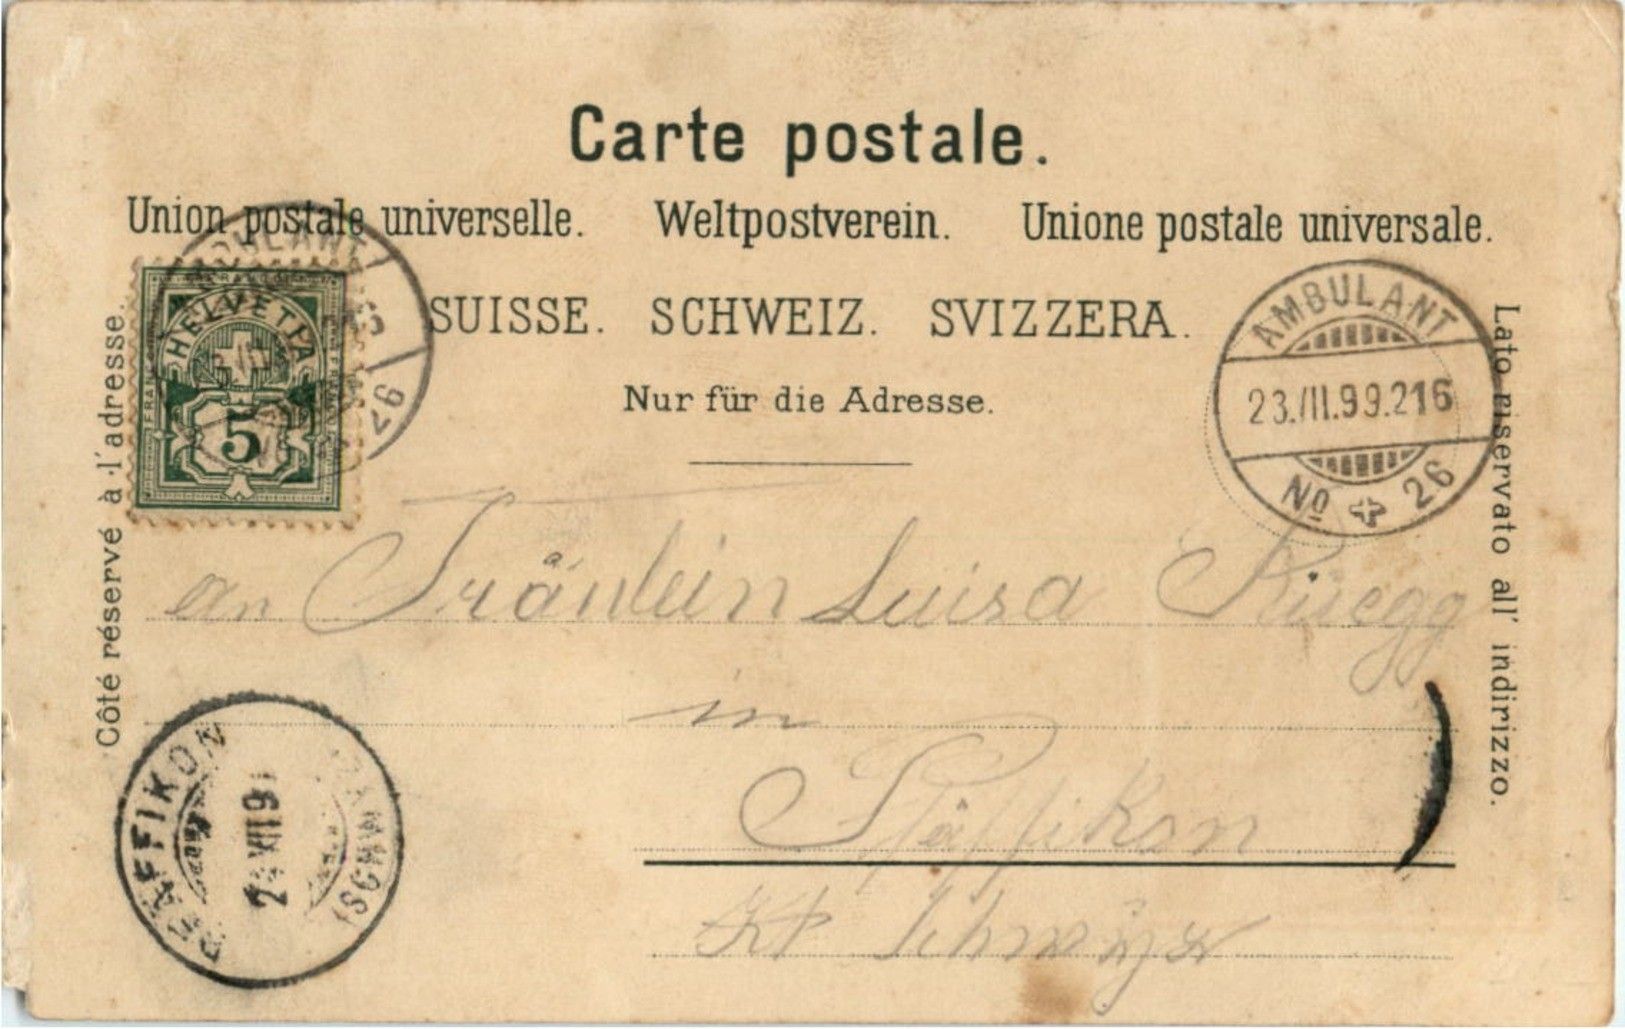 Carte postale.
Union postale universelle. Weltpostverein. Unione postale universale.
SUISSE. SCHWEIZ. SVIZZERA.
Nur für die Adresse.
Côté réservé à l'adresse.
Lato riservato all' indirizzo.
FRANCO
HELVETIA
5
AMBULANT
26
AMBULANT
23.VII.99.216
No 26
an Fräulein Luisa Rüegg
in
Pfäffikon
Kt Schwyz
PFÄFFIKON
24 VII 9
(SCHWYZ)